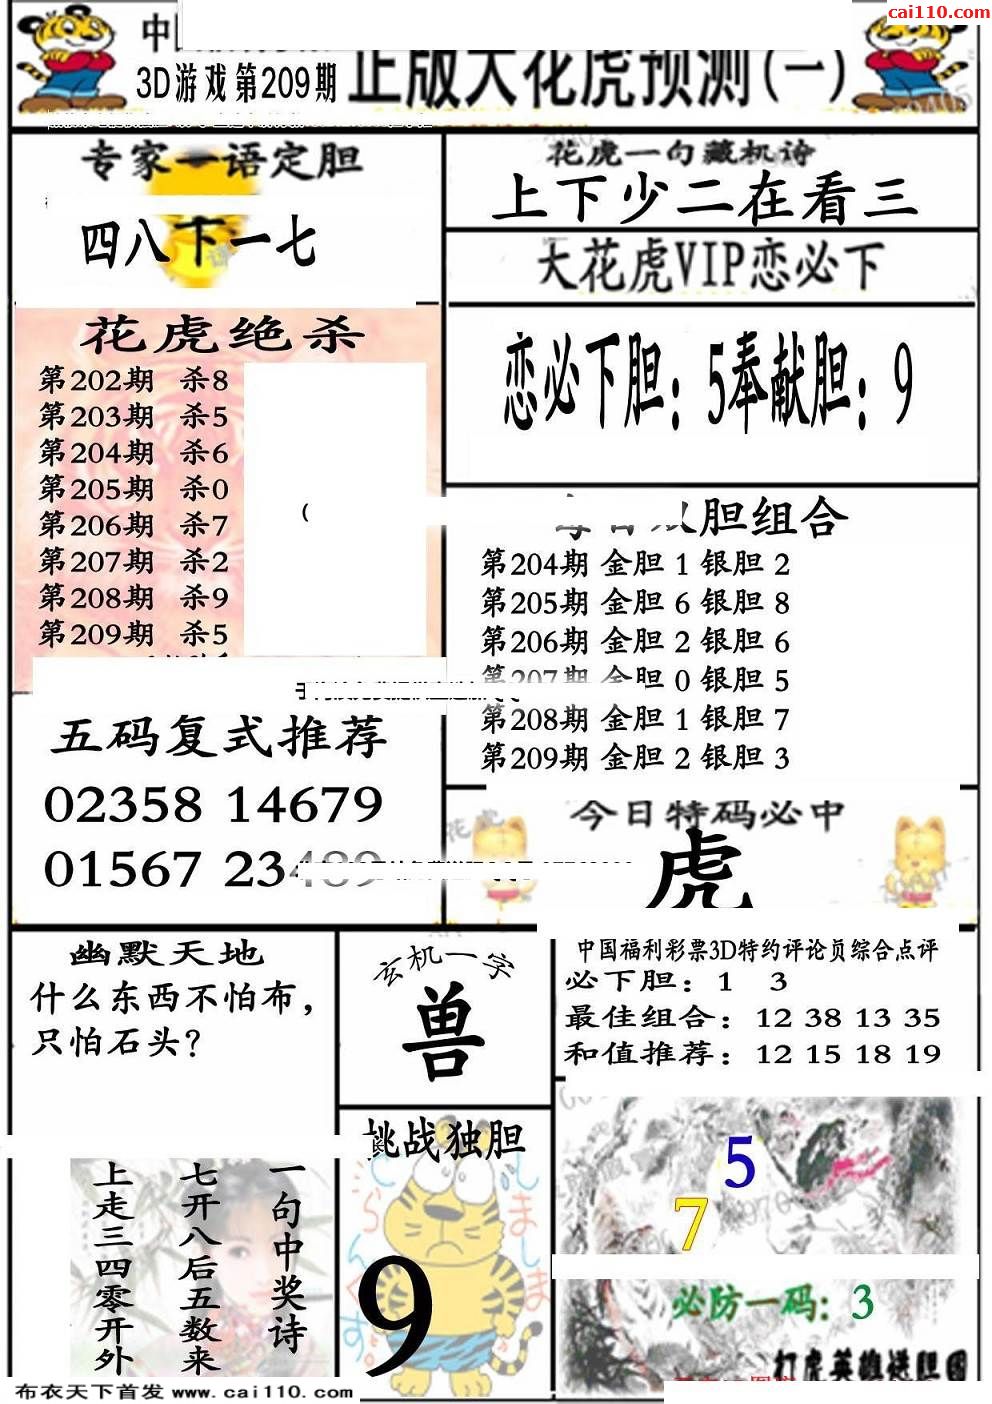 cai110.com
3D游戏第209期
正版大花虎预测(一)
专家一语定胆
四八下一七
花虎一句藏机诗
上下少二在看三
大花虎VIP恋必下
恋必下胆：5奉献胆：9
花虎绝杀
第202期 杀8
第203期 杀5
第204期 杀6
第205期 杀0
第206期 杀7
第207期 杀2
第208期 杀9
第209期 杀5
(
胆组合
第204期 金胆 1 银胆 2
第205期 金胆 6 银胆 8
第206期 金胆 2 银胆 6
第207期 金胆 0 银胆 5
第208期 金胆 1 银胆 7
第209期 金胆 2 银胆 3
五码复式推荐
02358 14679
01567 23489
今日特码必中
虎
幽默天地
什么东西不怕布，
只怕石头？
玄机一字
兽
中国福利彩票3D特约评论员综合点评
必下胆：1 3
最佳组合：12 38 13 35
和值推荐：12 15 18 19
一句中奖诗
七开八后五数来
上走三四零开外
挑战独胆
9
5
7
必防一码：3
打虎英雄进胆图
布衣天下首发 www.cai110.com